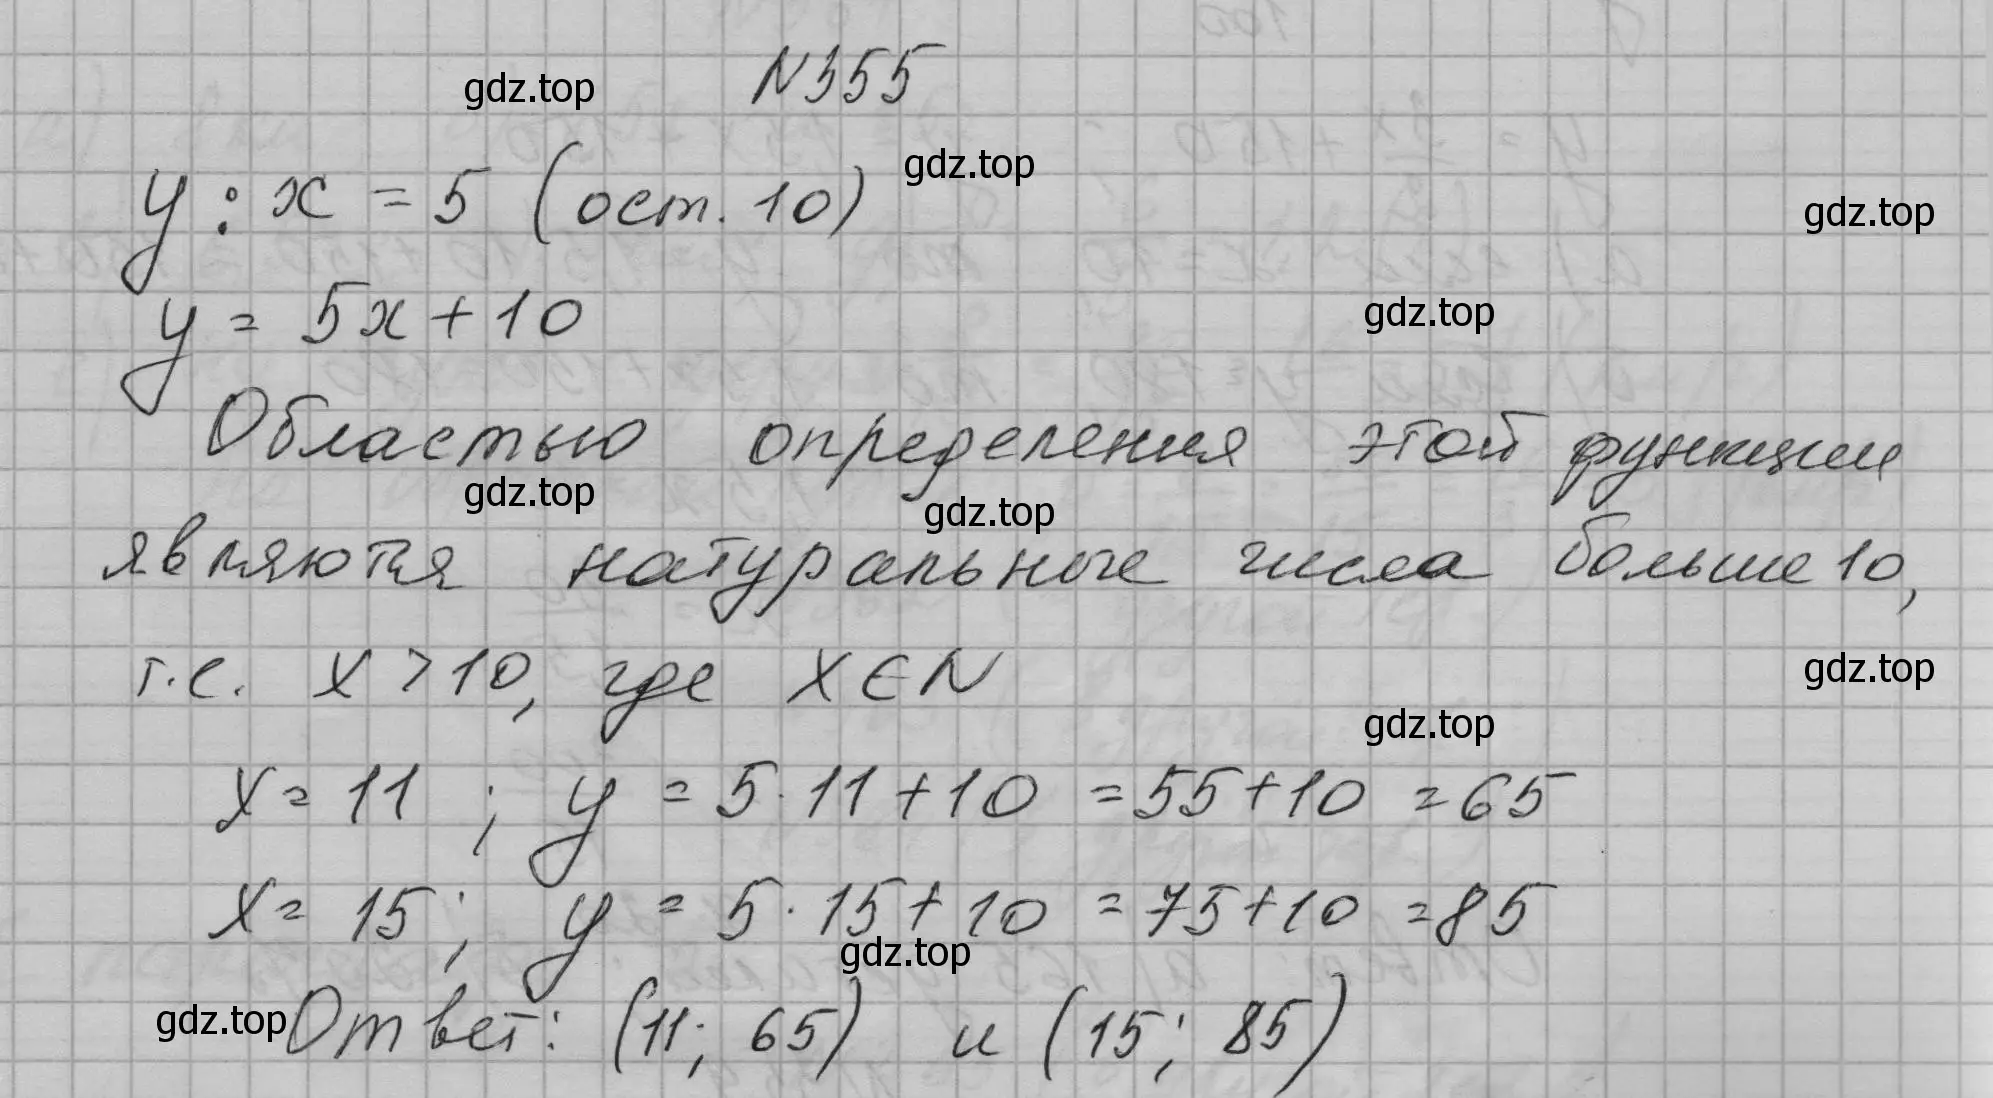 N355
gdz.top
y : x = 5 (ост. 10)
gdz.top
gdz.top
y = 5x + 10
gdz.top
Областью определения этой функции
gdz.top
gdz.top
являются натуральные числа больше 10,
т.е. x > 10, где x ∈ N
gdz.top
gdz.top
x = 11 ; y = 5 · 11 + 10 = 55 + 10 = 65
x = 15 ; y = 5 · 15 + 10 = 75 + 10 = 85
gdz.top
gdz.top
Ответ: (11; 65) и (15; 85)